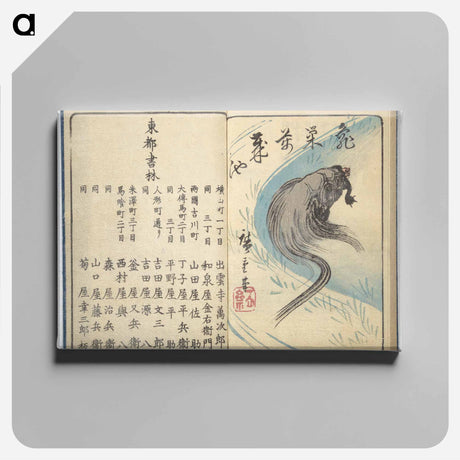 a
廣重
東都書林
横山町一丁目 出雲寺萬次郎
同 三丁目 和泉屋金右衛門
兩國吉川町 山田屋佐助
大傳馬町二丁目 丁子屋平兵衛
同 三丁目 平野屋平助
人形町通り 吉田屋文三郎
同 吉田屋源八
米澤町三丁目 釜屋又兵衛
馬喰町二丁目 西村屋與八
同 森屋治兵衛
同 山口屋藤兵衛
同 菊屋幸三郎板